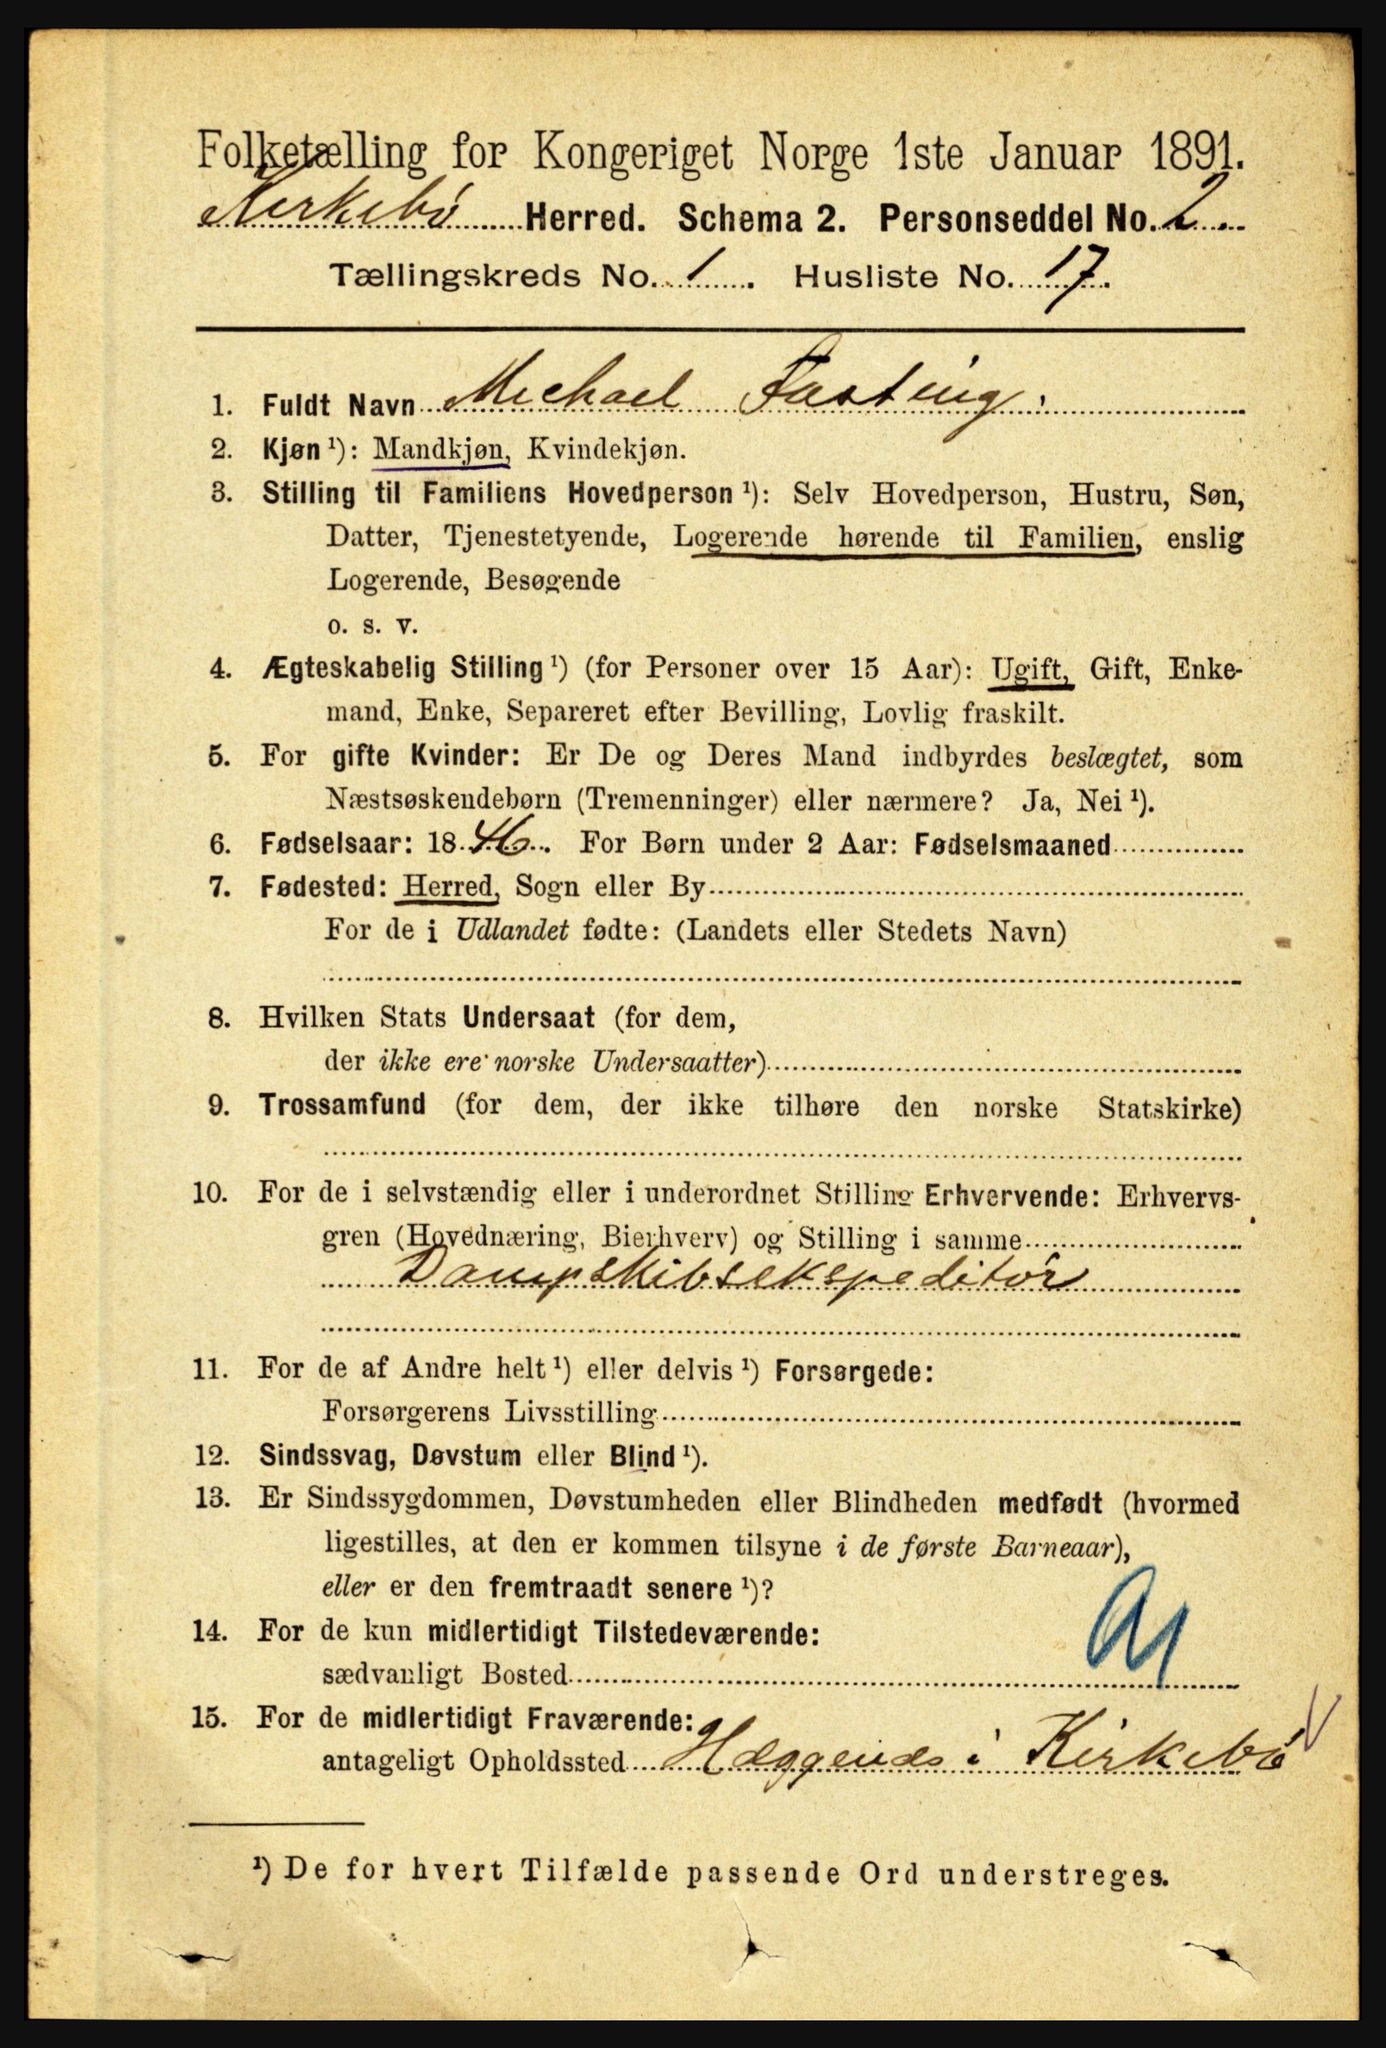 Folketælling for Kongeriget Norge 1ste Januar 1891.
Kirkebö Herred. Schema 2. Personseddel No. 2.
Tællingskreds No. 1. Husliste No. 17.
1. Fuldt Navn Michael Fasting.
2. Kjøn ¹): Mandkjøn, Kvindekjøn.
3. Stilling til Familiens Hovedperson ¹): Selv Hovedperson, Hustru, Søn,
Datter, Tjenestetyende, Logerende hørende til Familien, enslig
Logerende, Besøgende
o. s. v.
4. Ægteskabelig Stilling ¹) (for Personer over 15 Aar): Ugift, Gift, Enke-
mand, Enke, Separeret efter Bevilling, Lovlig fraskilt.
5. For gifte Kvinder: Er De og Deres Mand indbyrdes beslægtet, som
Næstsøskendebørn (Tremenninger) eller nærmere? Ja, Nei ¹).
6. Fødselsaar: 1846. For Børn under 2 Aar: Fødselsmaaned
7. Fødested: Herred, Sogn eller By
For de i Udlandet fødte: (Landets eller Stedets Navn)
8. Hvilken Stats Undersaat (for dem,
der ikke ere norske Undersaatter)
9. Trossamfund (for dem, der ikke tilhøre den norske Statskirke)
10. For de i selvstændig eller i underordnet Stilling Erhvervende: Erhvervs-
gren (Hovednæring, Bierhverv) og Stilling i samme
Dampskibsekspeditör
11. For de af Andre helt ¹) eller delvis ¹) Forsørgede:
Forsørgerens Livsstilling
12. Sindssvag, Døvstum eller Blind ¹).
13. Er Sindssygdommen, Døvstumheden eller Blindheden medfødt (hvormed
ligestilles, at den er kommen tilsyne i de første Barneaar),
eller er den fremtraadt senere ¹)?
14. For de kun midlertidigt Tilstedeværende:
sædvanligt Bosted
15. For de midlertidigt Fraværende:
antageligt Opholdssted i Kirkebö
¹) De for hvert Tilfælde passende Ord understreges.